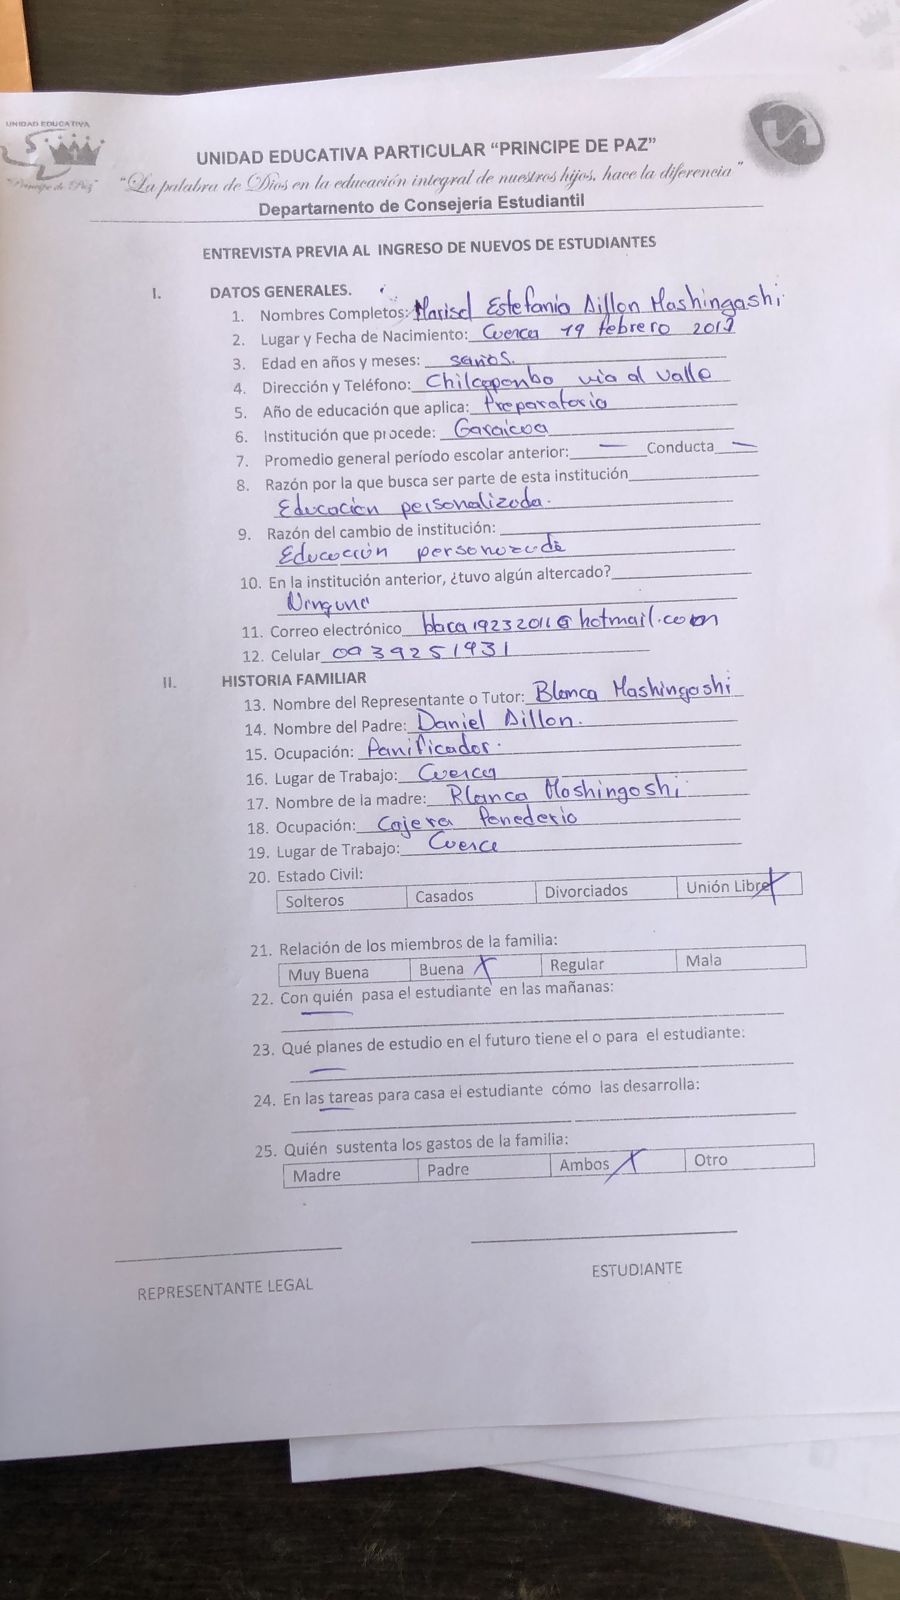 UNIDAD EDUCATIVA
"Principe de Paz"
UNIDAD EDUCATIVA PARTICULAR "PRINCIPE DE PAZ"
"La palabra de Dios en la educación integral de nuestros hijos, hace la diferencia"
Departamento de Consejería Estudiantil
ENTREVISTA PREVIA AL INGRESO DE NUEVOS DE ESTUDIANTES
I. DATOS GENERALES.
1. Nombres Completos: Marisol Estefania Dillon Mashingashi
2. Lugar y Fecha de Nacimiento: Cuenca 19 febrero
3. Edad en años y meses: 5 años.
4. Dirección y Teléfono: Chilcapamba via al valle
5. Año de educación que aplica: Preparatoria
6. Institución que procede: Garaicoa
7. Promedio general período escolar anterior: — Conducta —
8. Razón por la que busca ser parte de esta institución
Educación personalizada.
9. Razón del cambio de institución:
Educación
10. En la institución anterior, ¿tuvo algún altercado?
Ninguno
11. Correo electrónico bbca19232011@hotmail.com
12. Celular 0939251931
II. HISTORIA FAMILIAR
13. Nombre del Representante o Tutor: Blanca Mashingashi
14. Nombre del Padre: Daniel Dillon.
15. Ocupación: Panificador.
16. Lugar de Trabajo: Cuenca
17. Nombre de la madre: Blanca Mashingashi
18. Ocupación: Cajera Panederia
19. Lugar de Trabajo: Cuenca
20. Estado Civil:
Solteros Casados Divorciados Unión Libre X
21. Relación de los miembros de la familia:
Muy Buena Buena X Regular Mala
22. Con quién pasa el estudiante en las mañanas:
—
23. Qué planes de estudio en el futuro tiene el o para el estudiante:
—
24. En las tareas para casa el estudiante cómo las desarrolla:
—
25. Quién sustenta los gastos de la familia:
Madre Padre Ambos X Otro
REPRESENTANTE LEGAL ESTUDIANTE